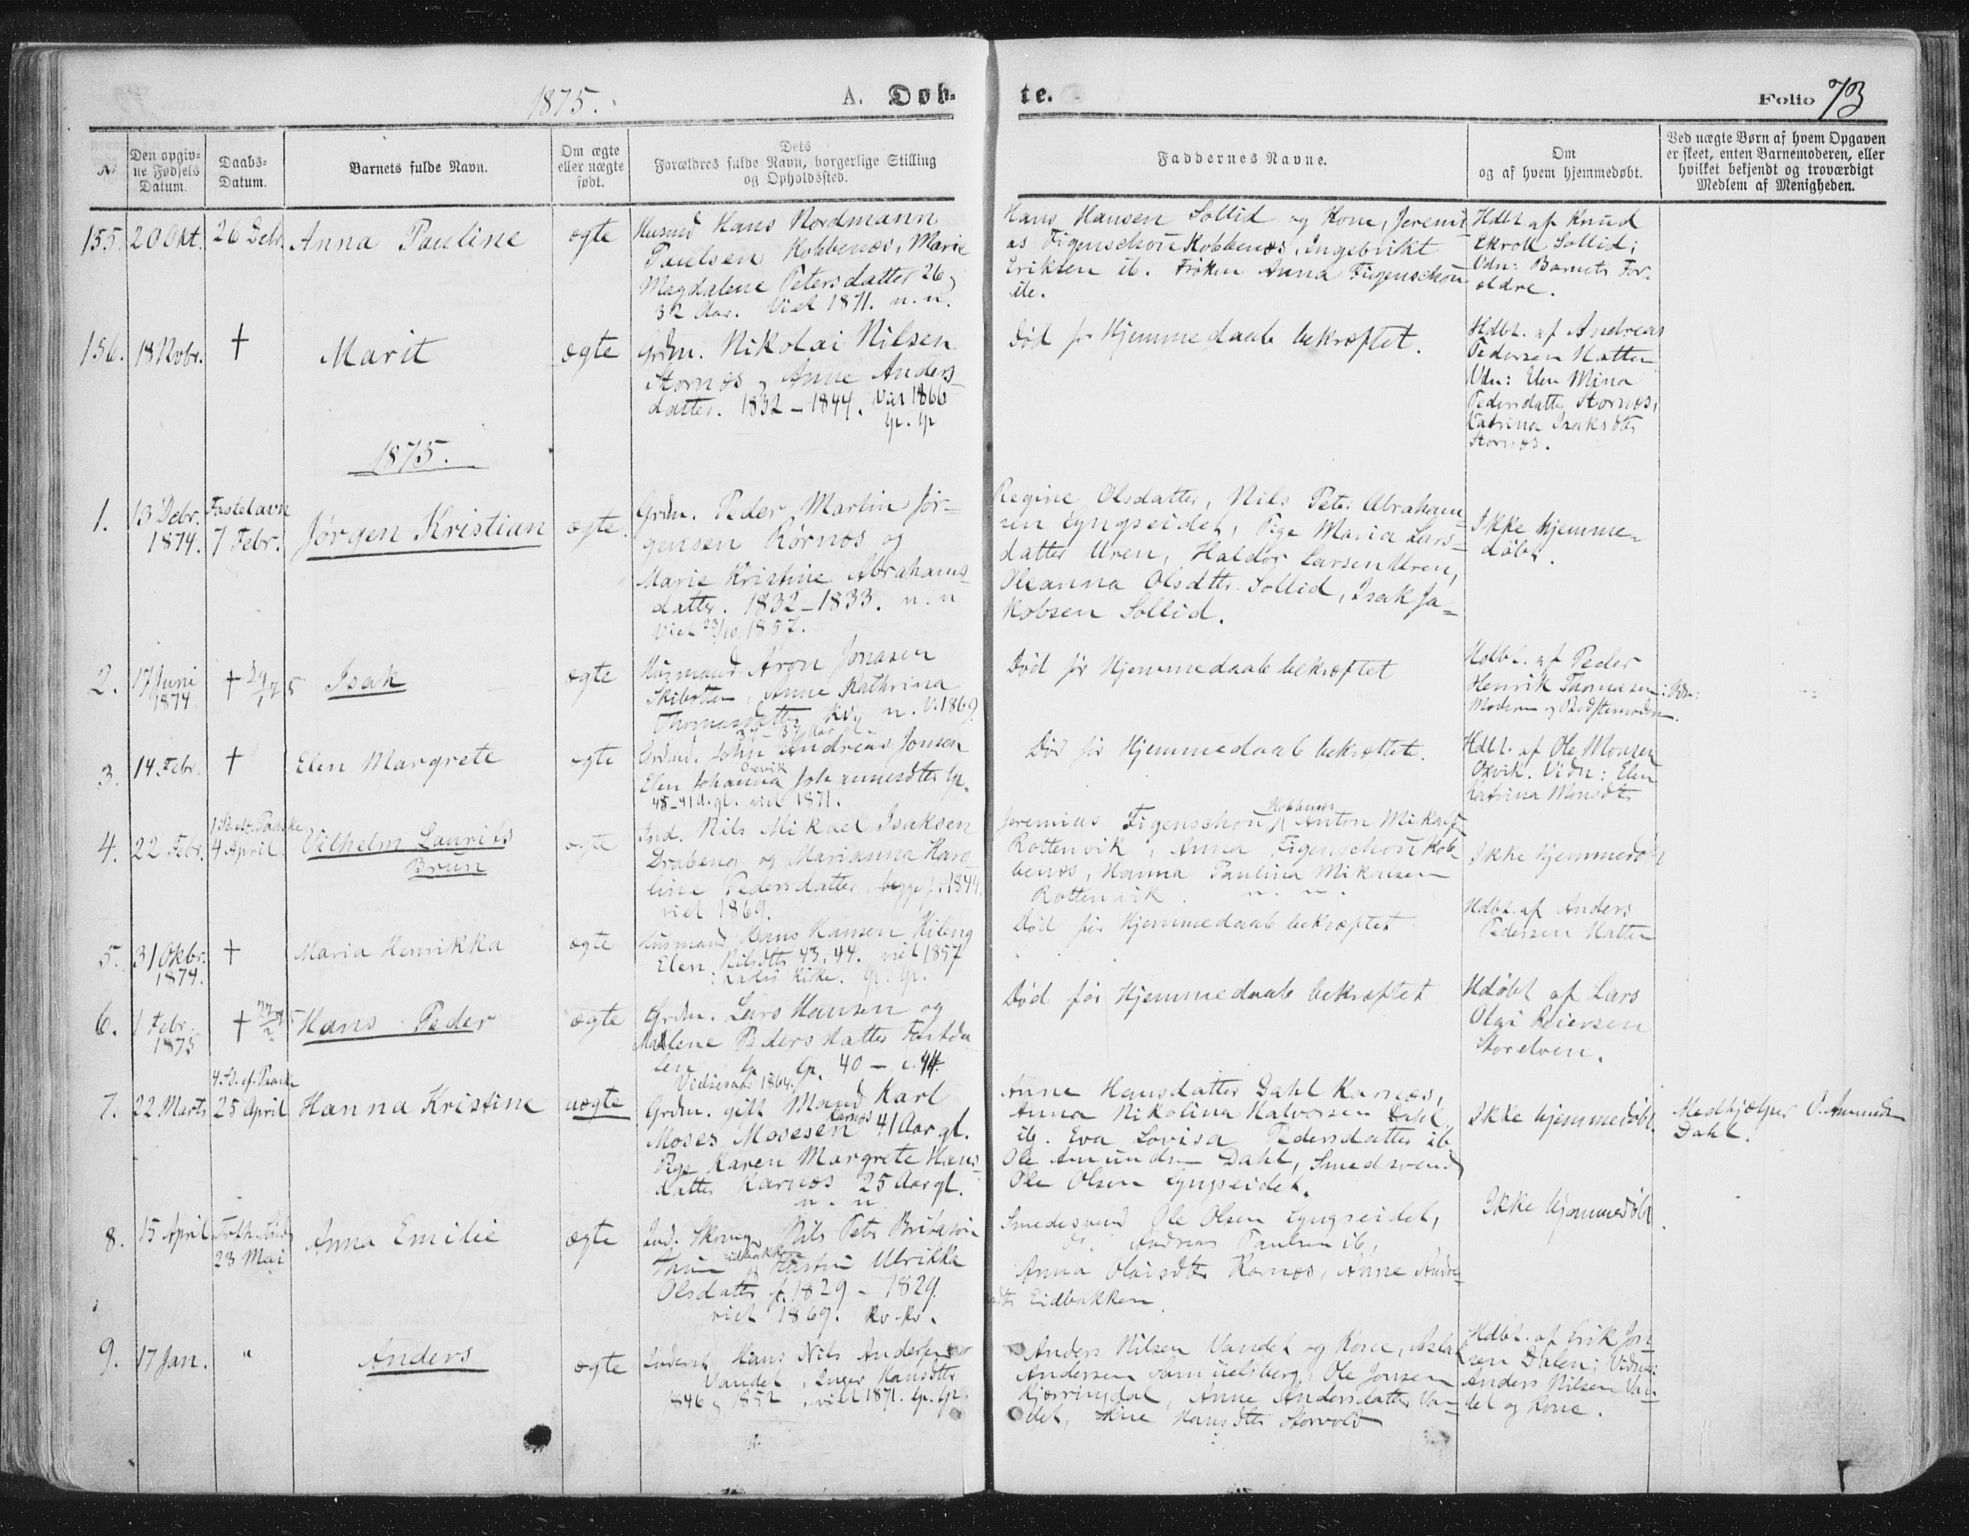 1875.
A. Døb-
te.
Folio 73
No
Den opgiv-
ne Fødsels
Datum.
Daabs-
Datum.
Barnets fulde Navn.
Om ægte
eller nægte
født.
Dets
Forældres fulde Navn, borgerlige Stilling
og Opholdssted.
Faddernes Navne.
Om
og af hvem hjemmedøbt.
Ved nægte Børn af hvem Opgaven
er skeet, enten Barnemoderen, eller
hvilket bekjendt og troværdigt
Medlem af Menigheden.
155. 20 Okt. 26 Debr. Anna Pauline ægte
Husmd Hans Nordmann
Paulsen Kobbenæs, Marie
Magdalene Petersdatter 26 og
32 Aar. Viet 1871. n. n.
Hans Hansen Sollid og Kone, Jeremi-
as Figenschou Kobbenæs, Ingebrikt
Eriksen ib. Frøken Anna Figenschou
ib.
Hdbt af Knud
Ekroll Sollid;
Vdn: Barnets For-
ældre.
156. 18 Novbr. † Marit ægte
Grdm. Nikolai Nilsen
Stornæs og Anne Anders-
datter. 1832 – 1844. Viet 1866
lp. lp
Død før Hjemmedaab bekræftet.
Hdbt. af Andreas
Pedersen Hatten
Vdn: Mina
Pedersdatter Stornæs,
Katrina Isaksdtr
Stornæs.
1875.
1. 13 Debr. 1874. Fastelavn 7 Febr. Jørgen Kristian ægte.
Grdm. Peder Martin Jør-
gensen Rørnæs og
Marie Kristine Abrahams-
datter. 1832 – 1833. n. n
Viet 23/10 1857.
Regine Olsdatter, Nils Peter Abraham-
sen Lyngseidet, Pige Maria Lars-
datter Uren, Haldor Larsen Uren,
Oleanna Olsdtr. Sollid, Isak Ja-
kobsen Sollid.
Ikke hjemme-
døbt.
2. 17 Juni 1874 † Isak ægte
Husmand Aron Jonasen
Skibotten, Anne Kathrina
Thomasdatter kv. n. V. 1869.
Død før Hjemmedaab bekræftet
Hdbt. af Peder
Henrik Thomasen: Vdn:
Moderen og Bedstemoderen.
3. 14 Febr. † Elen Margrete ægte
Grdmd. John Andreas Jonsen
Oxvik
Elen Johanna Johannesdtr lp.
45–41 A. gl. viet 1871.
Død før Hjemmedaab bekræftet.
Hdbt. af Ole Monsen
Oxvik. Vidn: Elen
Katrina Monsdtr
4. 22 Febr. 4 April Vilhelm Laurits
Brun
ægte
Ind. Nils Mikael Isaksen
Drabeng og Marianna Karo-
line Pedersdatter, begge f. 1844.
viet 1869.
Kobbenæs
Jeremias Figenschou, Anton Mikals
Rottenvik, Anna Figenschou Kob-
benæs, Hanna Paulina Mikalsen
Rottenvik. n. n.
Ikke hjemmedøbt
5. 31 Okbr. 1874. † Maria Henrikka ægte
Husmand Hans Hansen Kileng
Elen Nilsdtr 43, 44. viet 1857
lp. lp.
Død før Hjemmedaab bekræftet
Hdbt. af Anders
Pedersen Hatten
6. 1 Febr. 1875 † Hans Peder ægte
Grdm. Lars Hansen og
Malene Pedersdatter
lp. lp. 40 – c. 44.
1864.
Død før Hjemmedaab bekræftet
Hdøbt af Lars
Olai Reiersen
Storelven.
7. 22 Marts 4. S. ef. Paaske 25 April Hanna Kristine uægte
Grdm. gift Mand Karl
Moses Mosesen Karnæs 41 Aar gl.
Pige Karen Margrete Hans-
datter Karnæs 25 Aar gl.
n. n.
Anne Hansdatter Dahl Karnæs,
Anna Nikolina Halvorsen Dahl
ib. Eva Lovisa Pedersdatter ib
Ole Amundsen Dahl, Smedsvend
Ole Olsen Lyngseidet.
Ikke hjemmedøbt.
Medhjælper O. Amundsen
Dahl.
8. 15 April 23 Mai Anna Emilie ægte
Ind. Nils Peter
Eidbakken Ulrikka
Olsdatter f. 1829 – 1829.
viet 1869. kv. kv.
Smedesvend Ole Olsen Lyngseidet,
Andreas Paulsen ib,
Anna Olaisdtr Karnæs, Anne
Eidbakken.
Ikke hjemmedøbt.
9. 17 Jan. " Anders ægte
Inderst Hans Nils Andersen
Vandet, Inger Hansdtr
1846 og 1852, viet 1871. lp. lp.
Anders Nilsen Vandet og Kone, Aslak
Andersen Samuelsberg, Ole Jonsen
Kjærringdal, Anne Andersdatter Van-
det, Hansdtr Storvold
Hdbt. af Erik Jon-
sen Dalen; Vidn:
Anders Nilsen Van-
det og Kone.